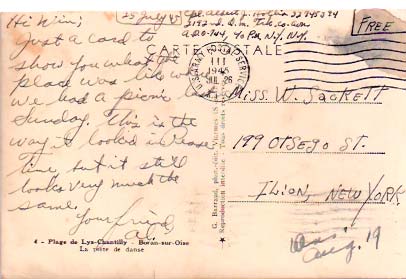 Hi Win:
Just a card to
show you what the
place was like where
we had a picnic
Sunday. This is the
way it looked in Peace
time, but it still
looks very much the
same.
Your friend,
Al.
25 July 45
APO-744, % P.M. N.Y., N.Y.
CARTE POSTALE
FREE
U.S. ARMY POSTAL SERVICE
III
1945
JUL 26
MISS. W. SACKETT
199 OTSEGO ST.
ILION, NEW YORK.
Ans.
Aug. 19
4 - Plage de Lys-Chantilly - Boran-sur-Oise
La piste de danse
Reproduction interdite - Tous droits